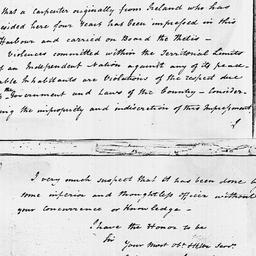 that a carpenter originally from Ireland who has
resided here four Years has been impressed in this
Harbour and carried on Board the Thetis –
Violences committed within the Territorial Limits
of an Independent Nation against any of its peace
able Inhabitants are Violations of the respect due
the Government and Laws of the Country – Consider
ing the impropriety and indiscretion of this Impressment
I
I very much suspect that it has been done by
some inferior and thoughtless officer without
your concurrence or Knowledge –
I have the Honor to be
Sir
Your most Obt. Hble Servt.